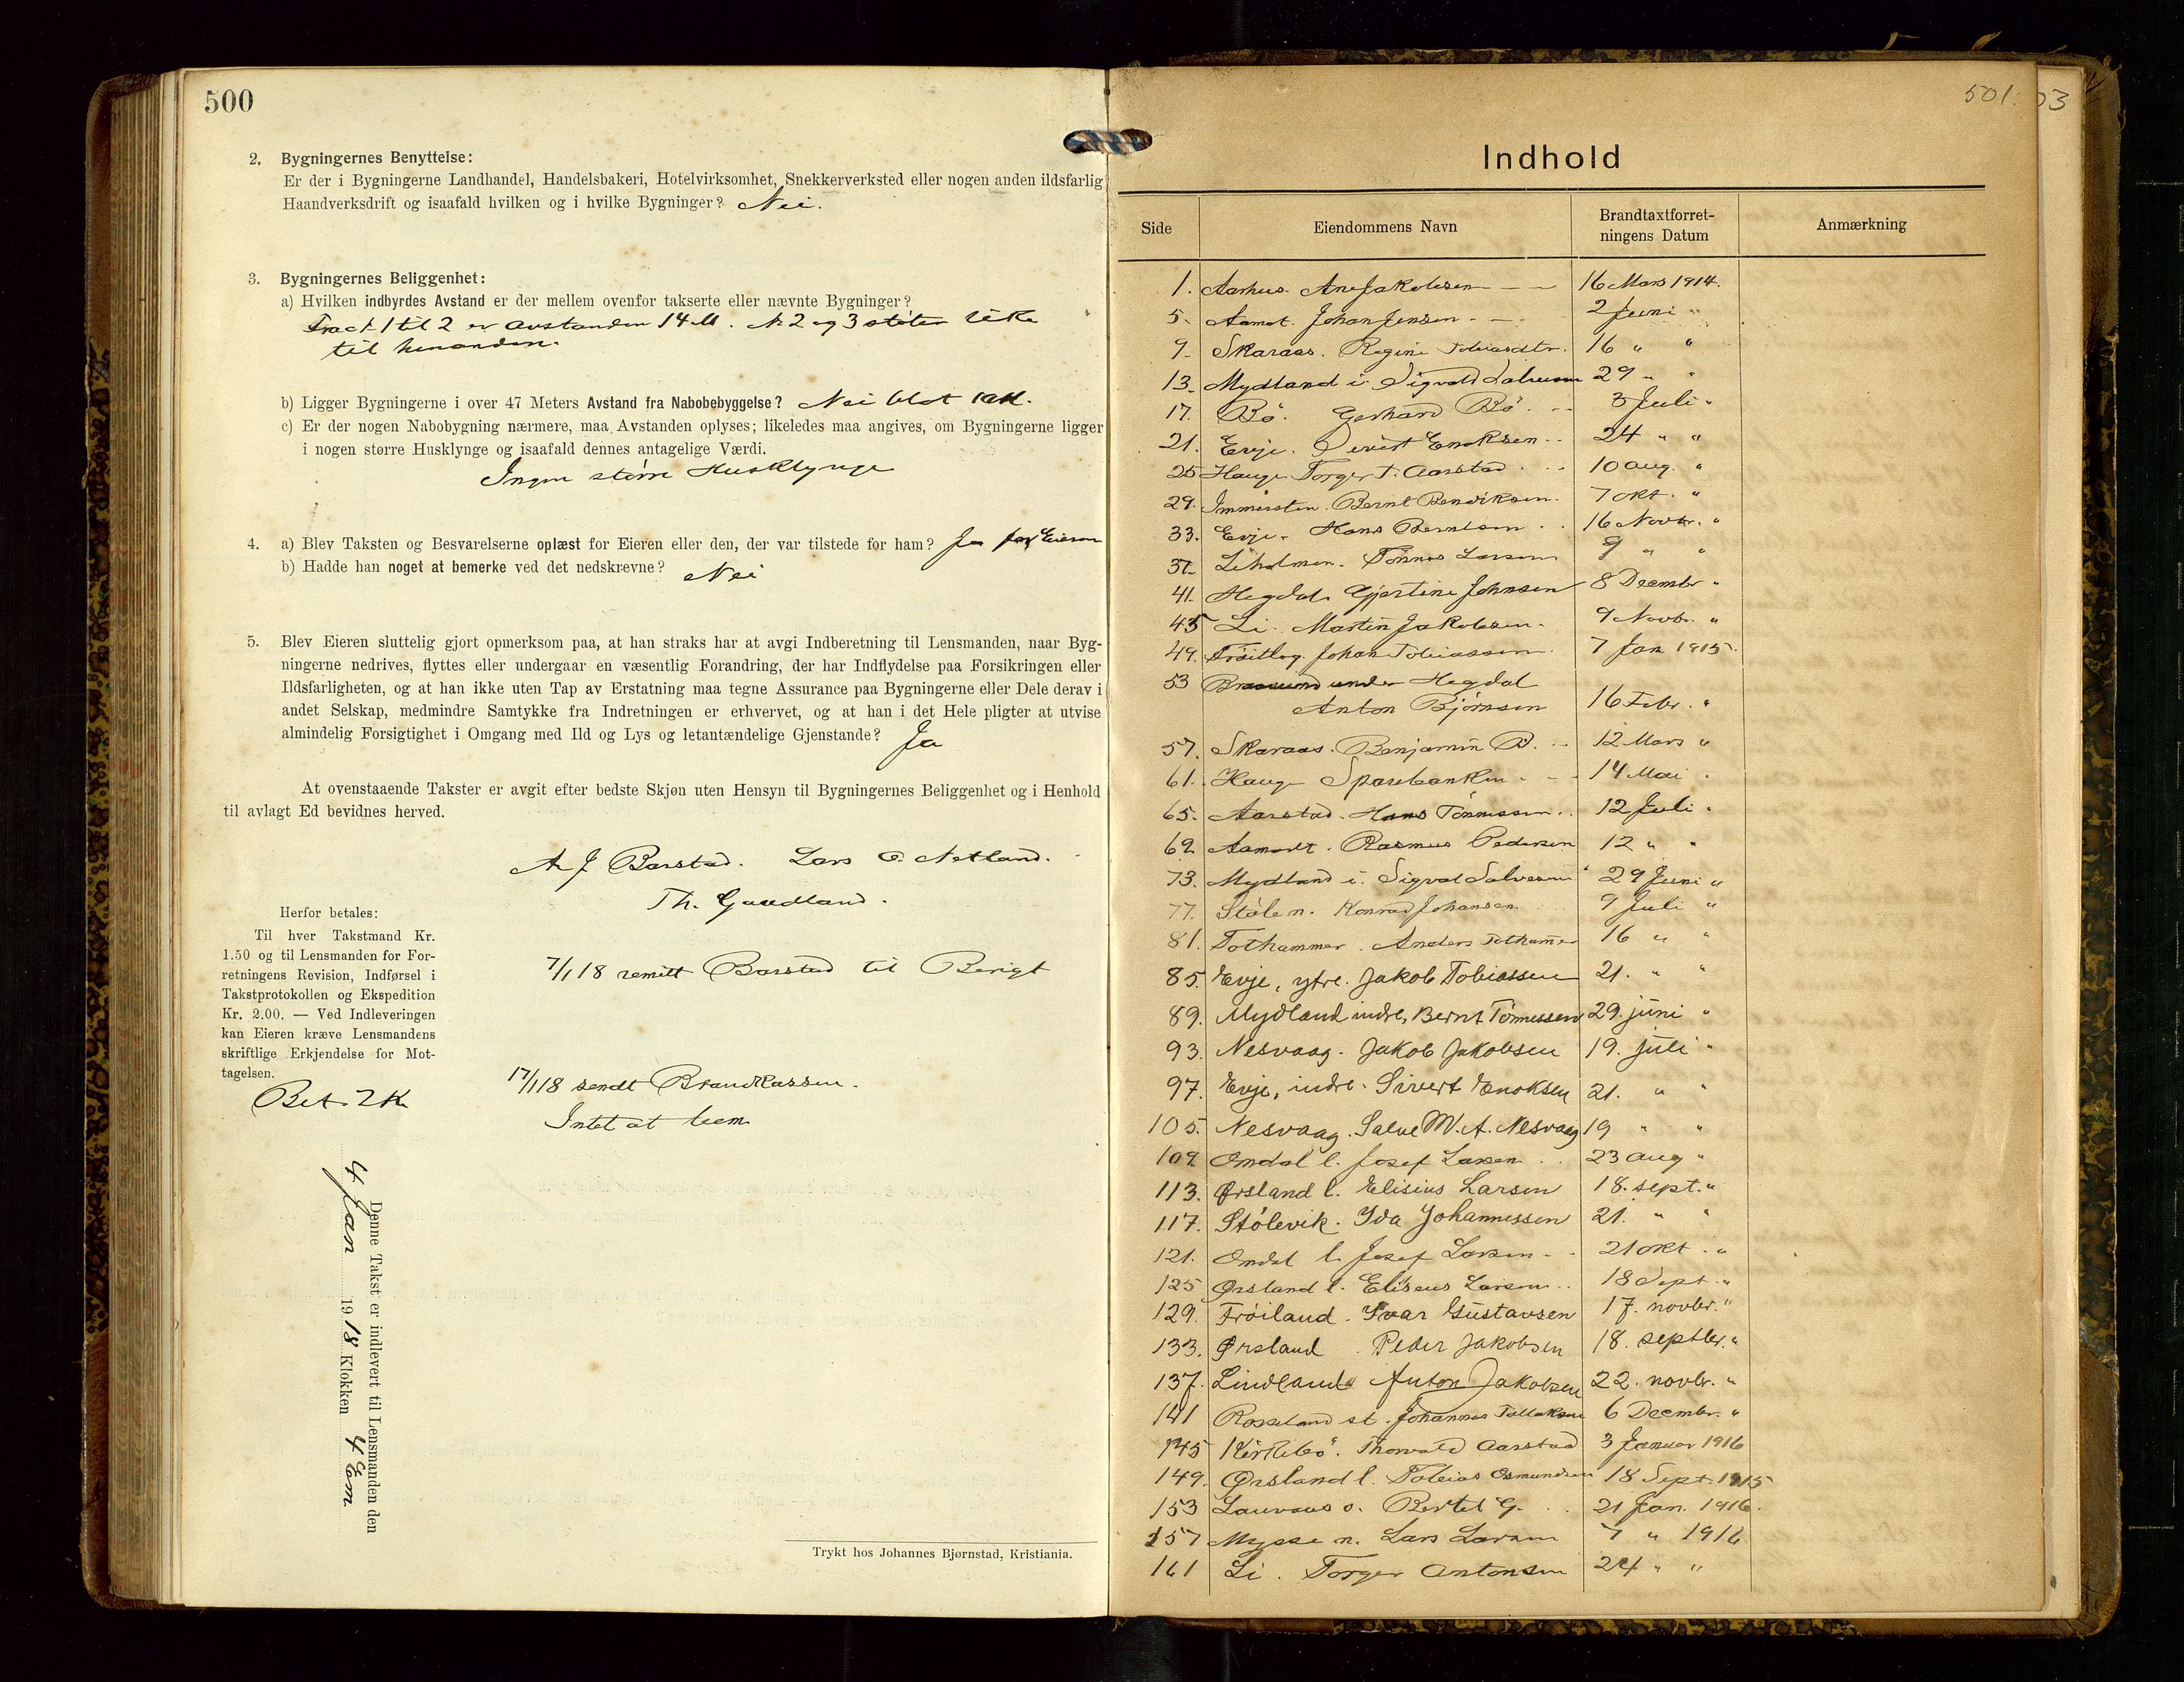 500
2. Bygningernes Benyttelse:
Er der i Bygningerne Landhandel, Handelsbakeri, Hotelvirksomhet, Snekkerverksted eller nogen anden ildsfarlig
Haandverksdrift og isaafald hvilken og i hvilke Bygninger? Nei.
3. Bygningernes Beliggenhet:
a) Hvilken indbyrdes Avstand er der mellem ovenfor takserte eller nævnte Bygninger?
Fra 1 til 2 er avstanden 14 M. No 2 og 3 støter like
til hinanden.
b) Ligger Bygningerne i over 47 Meters Avstand fra Nabobebyggelse? Nei blot
c) Er der nogen Nabobygning nærmere, maa Avstanden oplyses; likeledes maa angives, om Bygningerne ligger
i nogen større Husklynge og isaafald dennes antagelige Værdi.
Ingen større Husklynge
4. a) Blev Taksten og Besvarelserne oplæst for Eieren eller den, der var tilstede for ham? Ja for Eieren
b) Hadde han noget at bemerke ved det nedskrevne? Nei
5. Blev Eieren sluttelig gjort opmerksom paa, at han straks har at avgi Indberetning til Lensmanden, naar Byg-
ningerne nedrives, flyttes eller undergaar en væsentlig Forandring, der har Indflydelse paa Forsikringen eller
Ildsfarligheten, og at han ikke uten Tap av Erstatning maa tegne Assurance paa Bygningerne eller Dele derav i
andet Selskap, medmindre Samtykke fra Indretningen er erhvervet, og at han i det Hele pligter at utvise
almindelig Forsigtighet i Omgang med Ild og Lys og letantændelige Gjenstande? Ja
At ovenstaaende Takster er avgit efter bedste Skjøn uten Hensyn til Bygningernes Beliggenhet og i Henhold
til avlagt Ed bevidnes herved.
A J Barstad. Lars O. Netland.
Th. Gaudland.
Herfor betales:
Til hver Takstmand Kr.
1.50 og til Lensmanden for For-
retningens Revision, Indførsel i
Takstprotokollen og Ekspedition
Kr. 2.00. — Ved Indleveringen
kan Eieren kræve Lensmandens
skriftlige Erkjendelse for Mot-
tagelsen.
Bet. 2 Kr
7/1 18 remitt Barstad til Berigt
17/1 18 sendt Brandkassen.
Intet at bem
Denne Takst er indlevert til Lensmanden den
4 Jan 1918 Klokken 4 Em
Trykt hos Johannes Bjørnstad, Kristiania.
501.
03
Indhold
Side Eiendommens Navn Brandtaxtforret-
ningens Datum Anmærkning
1. Aarhus Ane Jakobsen — — 16 Mars 1914.
5. Aamot. Johan Jensen. — 2 Juni "
9. Skaraas. Regine Tobiasdtr. 16 " "
13. Mydland i. Sigvald Salvesen 29 " "
17. Bö. Gerhard Bö. 3 Juli "
21. Evje. Sivert Enoksen 24 " "
25 Hauge Torger T. Aarstad 10 aug. "
29. Immersten. Bernt Bendiksen. 7 okt. "
33. Evje. Hans Berntsen 16 Novbr. "
37. Leholmen. Tönnes Larsen 9 " "
41. Hegdal. Gjertine Johnsen 8 Decembr "
45 Li. Martin Jakobsen. 9 Novbr. "
49. Fröitlog. Johan Tobiassen. 7 Jan 1915.
53 under Hegdal
Anton Björnsen 16 Febr. "
57. Skaraas. Benjamin B. 12 Mars "
61. Hauge Sparebanken. 14 Mai "
65. Aarstad. Hans Tönnessen. 12 Juli "
69 Aamodt. Rasmus Pedersen 12 " "
73. Mydland i. Sigval Salvesen 29 Juni "
77. Stöle n. Konrad Johansen 9 Juli "
81. Tothammer. Anders Tothamer 16 " "
85. Evje, ytre. Jakob Tobiassen 21. " "
89. Mydland indre, Bernt Tönnessen 29. juni "
93. Nesvaag. Jakob Jakobsen 19. juli "
97. Evje, indre. Sivert Enoksen 21. " "
105. Nesvaag. Salve M. A. Nesvaag 19 " "
109 Omdal l. Josef Larsen 23 aug "
113. Ørsland l. Elisius Larsen 18. sept. "
117. Stölevik. Ida Johannessen 21. " "
121. Omdal l. Josef Larsen. 21 okt. "
125 Ørsland l. Eliseus Larsen. 18 Sept. "
129. Fröiland. Ivar Gustavsen 17. novbr. "
133. Ørsland. Peder Jakobsen 18. septbr. "
137. Lindland Anton Jakobsen 22. novbr. "
141 Rosseland st. Johannes Tollaksen 6 Decembr. "
145 Kirkebö. Thorvald Aarstad 3 Januar 1916
149. Ørsland l. Tobias Osmundsen 18 Sept. 1915
153 Lauvaas o. Bertel G. 21 Jan. 1916.
157 Mysse n. Lars Larsen 7 " 1916
161 Li. Torger Antonsen 24 " "